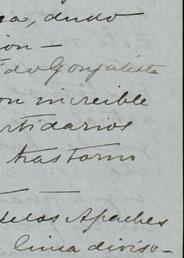 ra, dudo
ion —
do Gonzalista
on increible
artidarios
trastorno
de los Apaches
linea diviso-